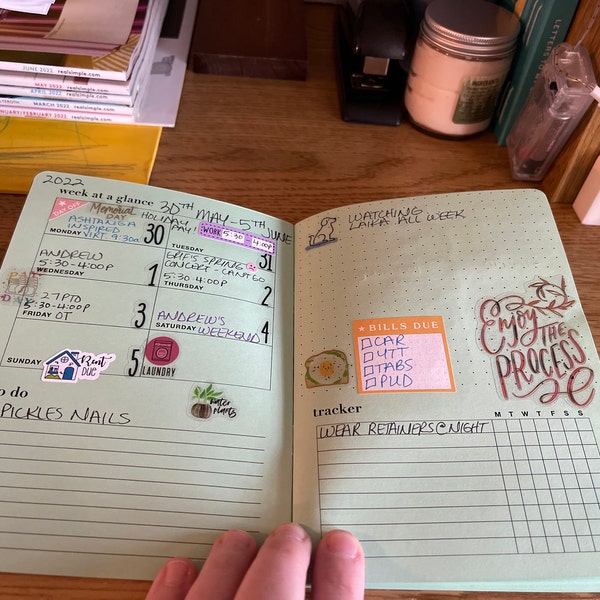 JUNE 2022 realsimple.com
MAY 2022 realsimple.com
APRIL 2022 realsimple.com
MARCH 2022 realsimple.com
NUARY/FEBRUARY 2022 realsimple.com
2022
week at a glance 30TH MAY-5TH JUNE
DAY OFF
Memorial DAY
HOLIDAY PAY!
ASHTANGA
INSPIRED
VIRT 9:30a
MONDAY 30
WORK 5:30 - 4:00P
TUESDAY 31
ANDREW
5:30-4:00P
WEDNESDAY 1
ERF'S SPRING
CONCERT - CANT GO
5:30-4:00P
THURSDAY 2
.27 PTO
5:30-4:00P
OT
FRIDAY 3
ANDREW'S
WEEKEND
SATURDAY 4
SUNDAY 5
Rent DUE
LAUNDRY
o do
water plants
PICKLES NAILS
WATCHING
LAIKA ALL WEEK
BILLS DUE
CAR
UTT
TABS
PUD
Enjoy THE PROCESS
tracker
M T W T F S S
WEAR RETAINERS@NIGHT